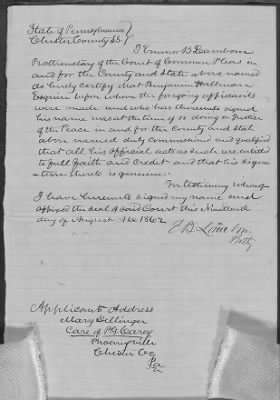 State of Pennsylvania }
Chester County SS }
I Emmor B Lamborn
Prothonotary of the Court of Common Pleas in
and for the County and State above named
do hereby certify that Benjamin Hallman
Esquire before whom the foregoing affidavits
were made and who has thereunto signed
his name was at the time of so doing a Justice
of the Peace in and for the County and State
above named duly commissioned and qualified
that all his official acts as such are entitled
to full faith and credit and that his signa
ture thereto is genuine.
In testimony whereof
I have hereunto signed my name and
affixed the seal of said Court this Nineteenth
day of August AD 1862
E B
Proty
Applicants Address
Mary Dillinger
Care of P. G. Carey
Phoenixville
Chester Co
Pa